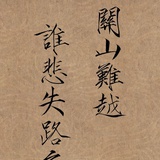 關山難越
誰悲失路